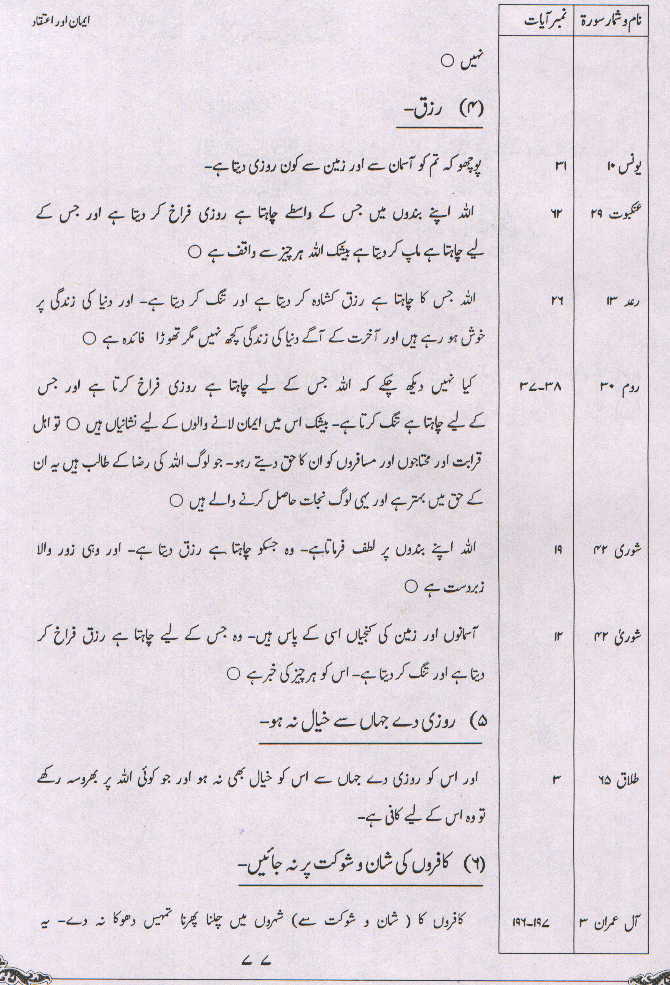 نام و شمار سورۃ نمبر آیات ایمان اور اعتقاد
نہیں ○
(۴) رزق-
یونس ۱۰ ۳۱ پوچھو کہ تم کو آسمان سے اور زمین سے کون روزی دیتا ہے-
عنکبوت ۲۹ ۶۲ اللہ اپنے بندوں میں جس کے واسطے چاہتا ہے روزی فراخ کر دیتا ہے اور جس کے
لیے چاہتا ہے ماپ کر دیتا ہے بیشک اللہ ہر چیز سے واقف ہے ○
رعد ۱۳ ۲۶ اللہ جس کا چاہتا ہے رزق کشادہ کر دیتا ہے اور تنگ کر دیتا ہے- اور دنیا کی زندگی پر
خوش ہو رہے ہیں اور آخرت کے آگے دنیا کی زندگی کچھ نہیں مگر تھوڑا فائدہ ہے ○
روم ۳۰ ۳۷-۳۸ کیا نہیں دیکھ چکے کہ اللہ جس کے لیے چاہتا ہے روزی فراخ کرتا ہے اور جس
کے لیے چاہتا ہے تنگ کرتا ہے- بیشک اس میں ایمان لانے والوں کے لیے نشانیاں ہیں ○ تو اہل
قرابت اور محتاجوں اور مسافروں کو ان کا حق دیتے رہو- جو لوگ اللہ کی رضا کے طالب ہیں یہ ان
کے حق میں بہتر ہے اور یہی لوگ نجات حاصل کرنے والے ہیں ○
شوری ۴۲ ۱۹ اللہ اپنے بندوں پر لطف فرماتا ہے- وہ جسکو چاہتا ہے رزق دیتا ہے- اور وہی زور والا
زبردست ہے ○
شوریٰ ۴۲ ۱۲ آسمانوں اور زمین کی کنجیاں اسی کے پاس ہیں- وہ جس کے لیے چاہتا ہے رزق فراخ کر
دیتا ہے اور تنگ کر دیتا ہے- اس کو ہر چیز کی خبر ہے ○
۵) روزی دے جہاں سے خیال نہ ہو-
طلاق ۶۵ ۳ اور اس کو روزی دے جہاں سے اس کو خیال بھی نہ ہو اور جو کوئی اللہ پر بھروسہ رکھے
تو وہ اس کے لیے کافی ہے-
(۶) کافروں کی شان و شوکت پر نہ جائیں-
آل عمران ۳ ۱۹۶-۱۹۷ کافروں کا ( شان و شوکت سے) شہروں میں چلنا پھرنا تمہیں دھوکا نہ دے- یہ
۷۷